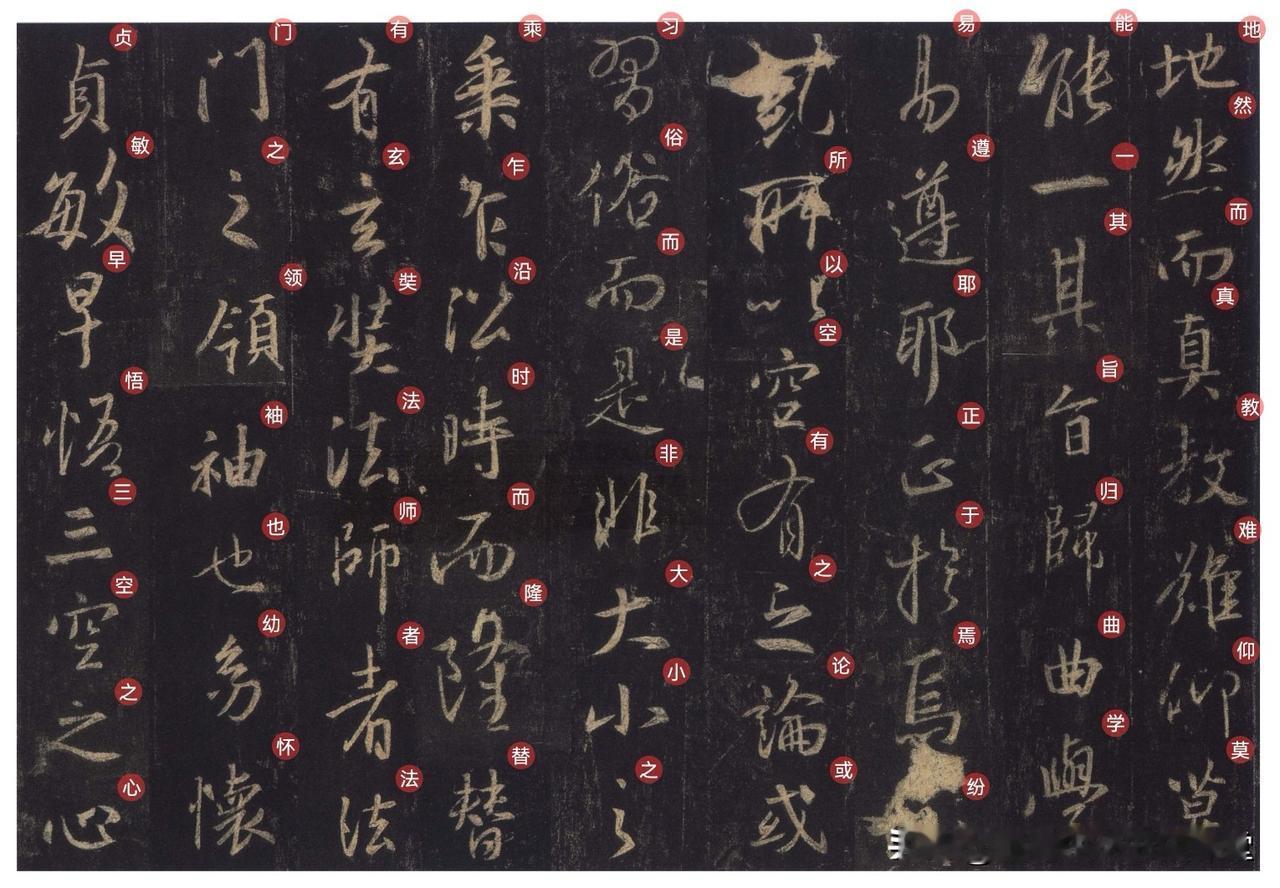 地然而真教難仰莫
地然而真教难仰莫
能一其旨歸曲學
能一其旨归曲学
易遵耶正於焉
易遵耶正于焉纷
糺所以空有之論或
所以空有之论或
習俗而是非大小之
习俗而是非大小之
乘乍沿時而隆替
乘乍沿时而隆替
有玄奘法師者法
有玄奘法师者法
門之領袖也幼懷
门之领袖也幼怀
貞敏早悟三空之心
贞敏早悟三空之心